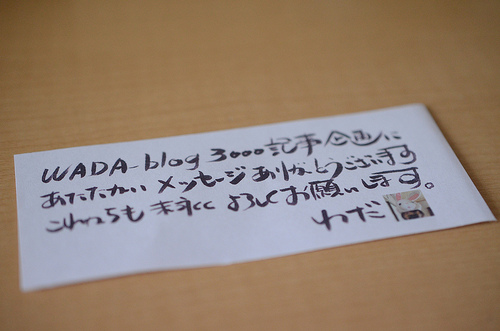 WADA-blog 3000記事企画に
あたたかい メッセージ ありがとうございます
これからも 末永く よろしくお願いします。
わだ